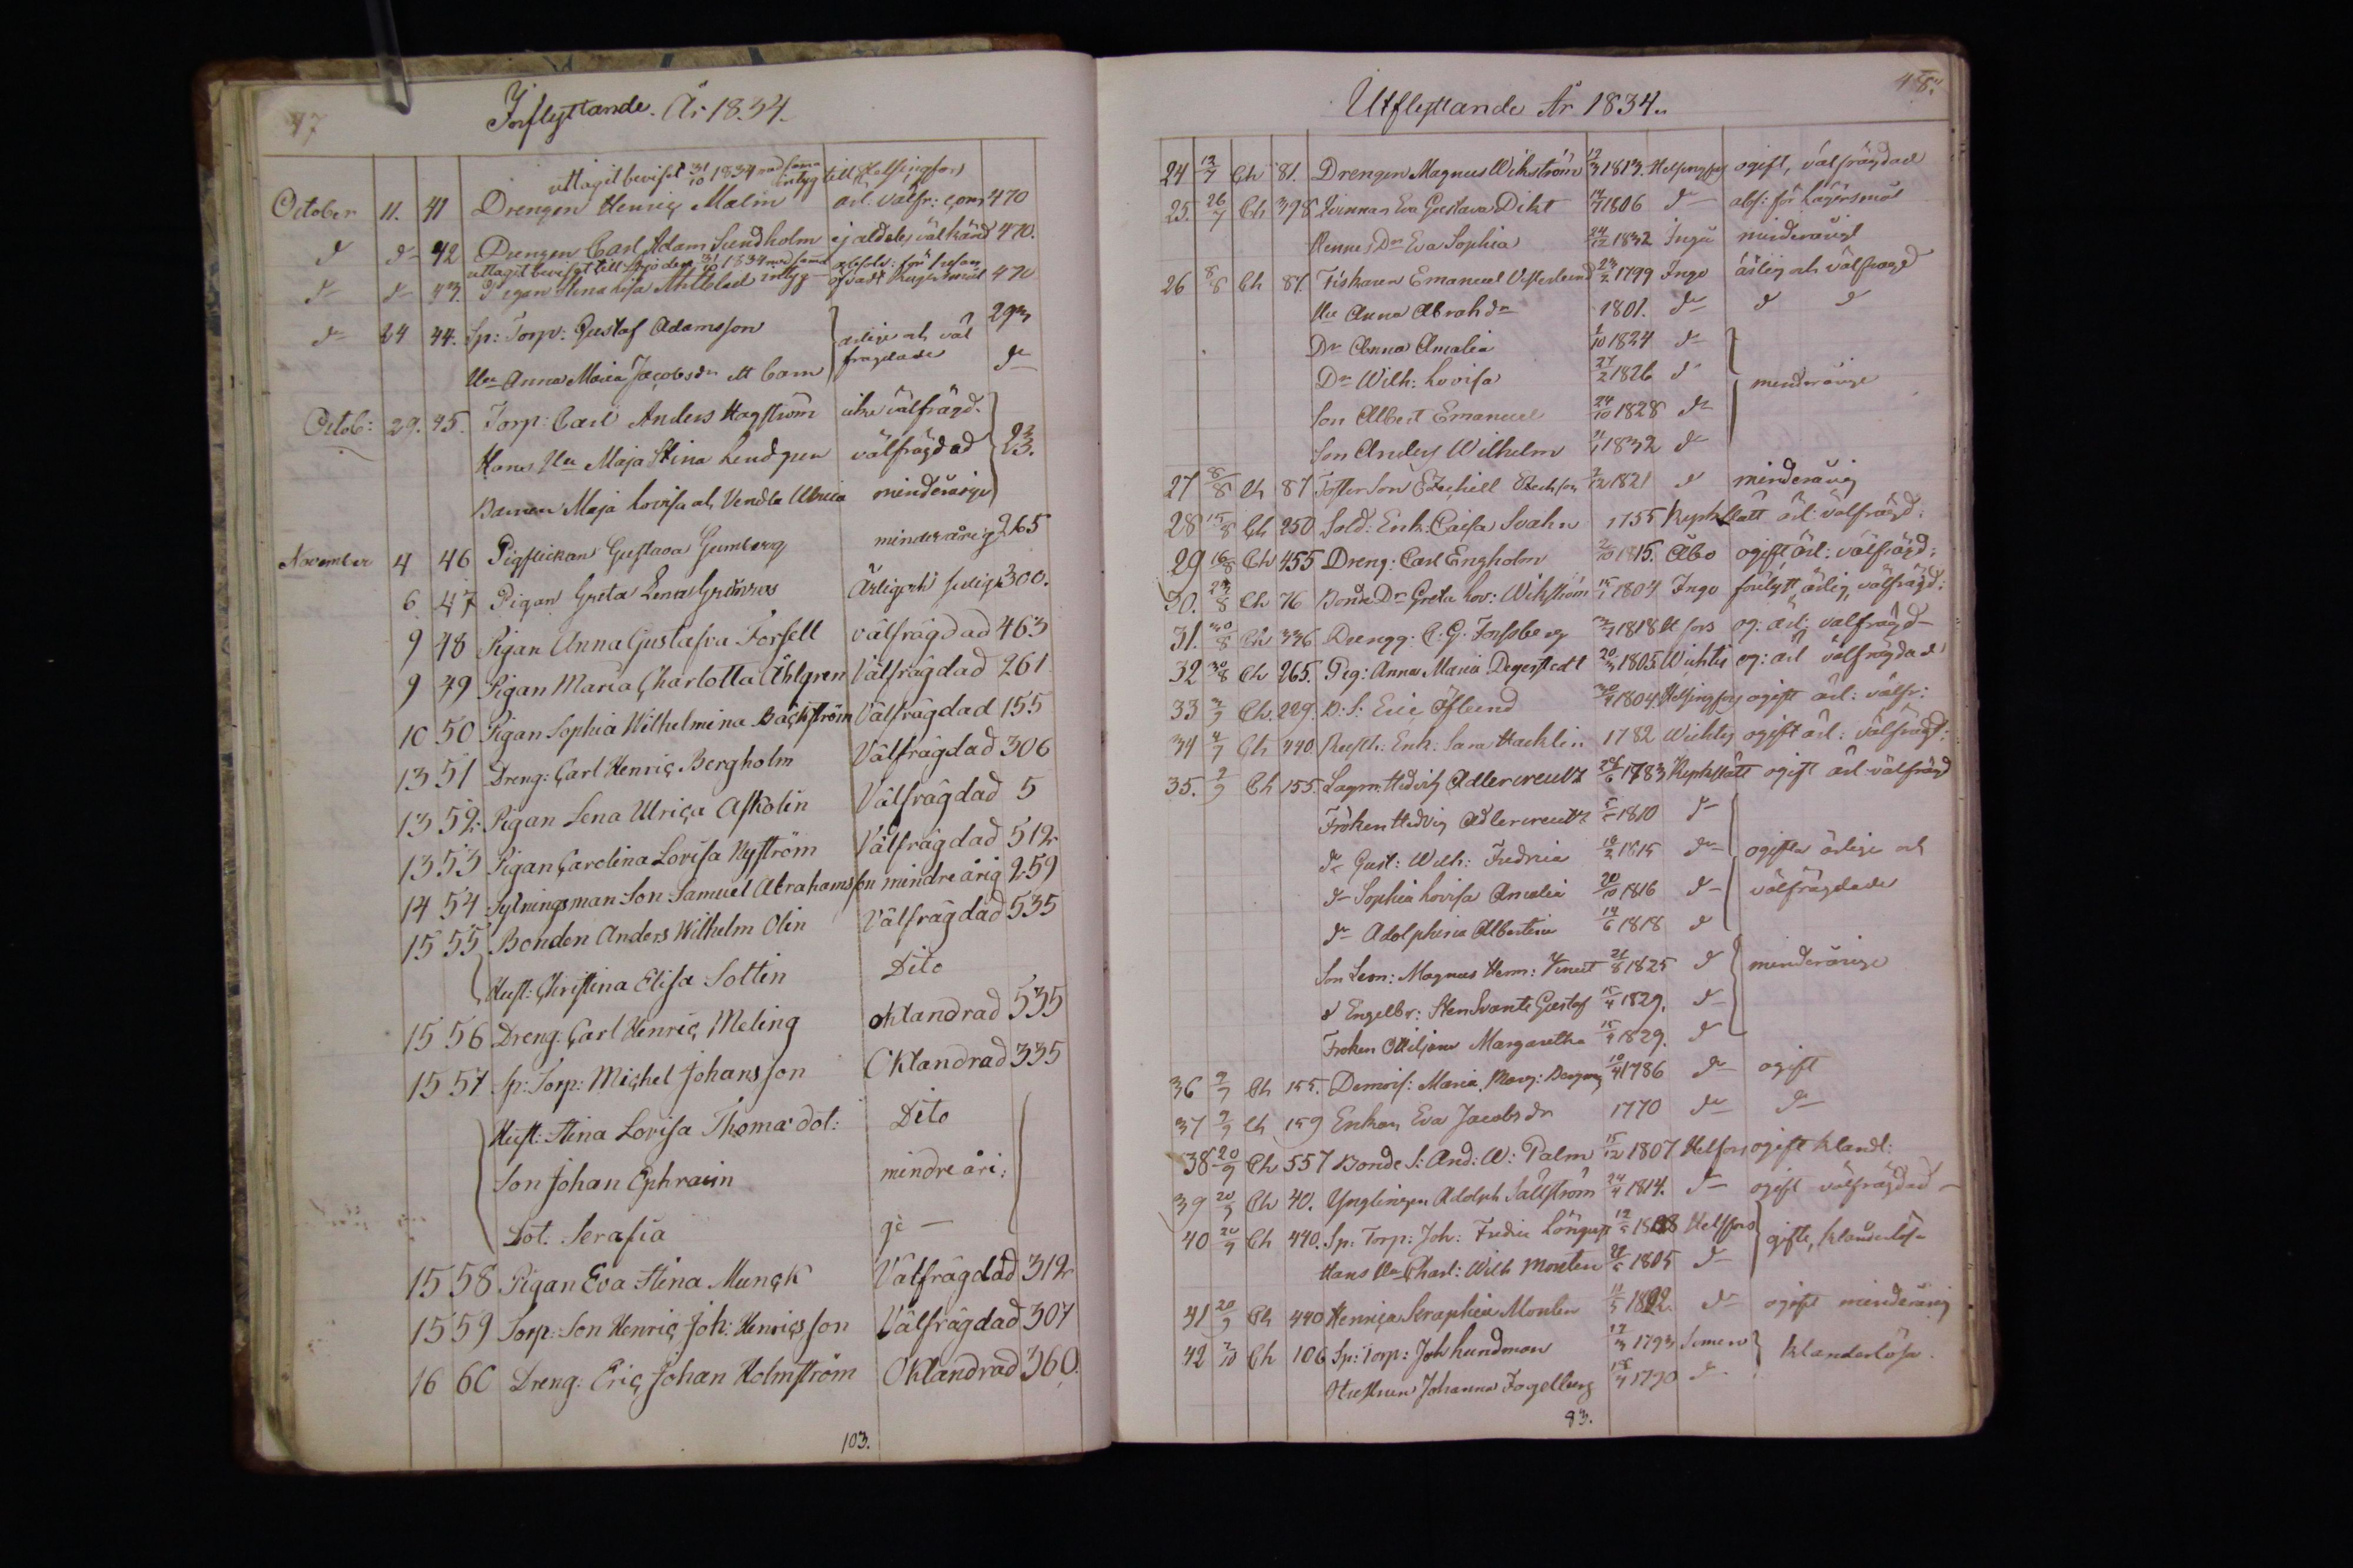 47
Inflyttande. År 1834.
uttagit beviset 31/10 1834 med samma intyg till Helsingfors
October 11. 41 Drengen Henric Malm ärl: välfr: com 470
d d 42 Drengen Carl Adam Sundholm ej aldeles välkänd 470.
uttagit beviset till Sjödea 31/10 1834 med samma intyg
d d 43. Pigan Stina Lisa Ahlblad 470
d 24 44. Sp: Torp: Gustaf Adamsson ärlige och väl 293
Hu Anna Maria Jacobsdr ett barn frägdade d
Octob: 29. 45. Torp: Carl Anders Hagström icke välfrägd.
Hans Hu Maja Stina Lindgren välfrägdad 23.
Barnen Maja Lovisa och Vendla Ulrica minderårige
November 4 46 Pigflickan Gustava Gumberg minderårig 265
6 47 Pigan Greta Lena Grönroos Ärlig och sedig 300.
9 48 Pigan Anna Gustafva Forsell välfrägdad 463
9 49 Pigan Maria Charlotta Åhlgren Välfrägdad 261
10 50 Pigan Sophia Wilhelmina Bäckström Välfrägdad 155
13 51 Dreng: Carl Henric Bergholm Välfrägdad 306
13 52. Pigan Lena Ulrica Askolin Välfrägdad 5
13 53 Pigan Carolina Lovisa Nyström Välfrägdad 512
14 54 Sytningsman Son Samuel Abrahamsson mindreårig 259
15 55 Bonden Anders Wilhelm Olin Välfrägdad 535
Hust: Christina Elisa Soltin Dito
15 56 Dreng: Carl Henric Meling oklandrad 535
15 57 Sp: Torp: Michel Johansson Oklandrad 335
Hust: Stina Lovisa Thomædot: Dito
Son Johan Ephraim mindreåri:
Dot. Serafia ge —
15 58 Pigan Eva Stina Munck Välfrägdad 312
15 59 Torp: Son Henric Joh: Henricsson Välfrägdad 307
16 60 Dreng: Eric Johan Holmström Oklandrad 360.
103.
48.
Utflyttande År 1834.
24 12/7 Ch 81. Drengen Magnus Wikström 12/3 1813. Helsingfors ogift, välfrägdad
25. 26/7 Ch 398 Qvinnan Eva Gustava Dikt 1806 d abs: för lägersmål
Hennes Dr Eva Sophia 24/12 1832 Ingå minderårig
26 8/8 Ch 87. Fiskaren Emanuel Vesterlund 23/2 1799 Ingo ärlig och välfrägd
Hu Anna Abrahdr 1801. d d d
Dr Anna Amalia 1/10 1824 d
Dr Wilh: Lovisa 27/2 1826 d minderårige
Son Albert Emanuel 24/10 1828 d
Son Anders Wilhelm 1832 d
27 8/8 Ch 87 Foster Son Ezechiell 1821 d minderårig
28 15/8 Ch 250 Sold: Enk: Caisa Svahn 1755 Kyrkslätt ärl: välfrägd:
29 16/8 Ch 455 Dreng: Carl Engholm 2/10 1815. Åbo ogift ärl: välfrägd:
30. 23/8 Ch 76 Bonde Dr Greta Lov: Wikström 15/1 1804 Ingo förlyft, ärlig, välfrägd:
31. 30/8 Ch 336 Drengg: C. G. Forsberg 1818 H fors og: ärl: välfrägd
32 30/8 Ch 265. Pig: Anna Maria Degerstedt 20/3 1805 Wichtis og: ärl välfrägdad
33 3/9 Ch. 229. B: S: Eric Öflund 30/4 1804 Helsingfors ogift ärl: välfr:
34 4/9 Ch 440. Rusth: Enk: Sara Hacklin 1782 Wichtis ogift ärl: välfrägd:
35. 9/9 Ch 155. Lagm: Hedvig Adlercreutz 26/6 1783 Kyrkslätt ogift ärl välfrägd
Fröken Hedvig Adlercreutz 1810 d
d Gust: Wilh: Fredrica 12/2 1815 d ogifta ärlige och
d Sophia Lovisa Amalia 20/10 1816 d välfrägdade
d Adolphina Albertina 14/6 1818 d
Son Leon: Magnus Herm: 21/8 1825 d minderårige
d Engelbr: Sten Svante Gustaf 15/4 1829. d
Froken Ottiljana Margaretha 15/4 1829. d
36 9/9 Ch 155. Demois: Maria Marg: 10/4 1786 d ogift
37 9/9 Ch 159 Enkan Eva Jacobsdr 1770 d d
38 20/9 Ch 557 Bonde S: And: W: Palm 15/12 1807 Helsfors ogift klandl:
39 20/9 Ch 40. Ynglingen Adolph Sällström 24/4 1814. d ogift välfrägdad
40 20/9 Ch 440. Sp: Torp: Joh: Fredric Löngvist 12/5 1808 Helsfors gifte, klanderlösa
Hans Hu Charl: Wilh Monten 1805 d
41 20/9 Ch 440 Henrica Seraphia Monten 1822. d ogift minderårig
42 2/10 Ch 106 Sp: Torp: Joh Lundman 17/3 1793 Somero klanderlösa.
Hustrun Johanna Fogelberg 18/4 1790 d
83.